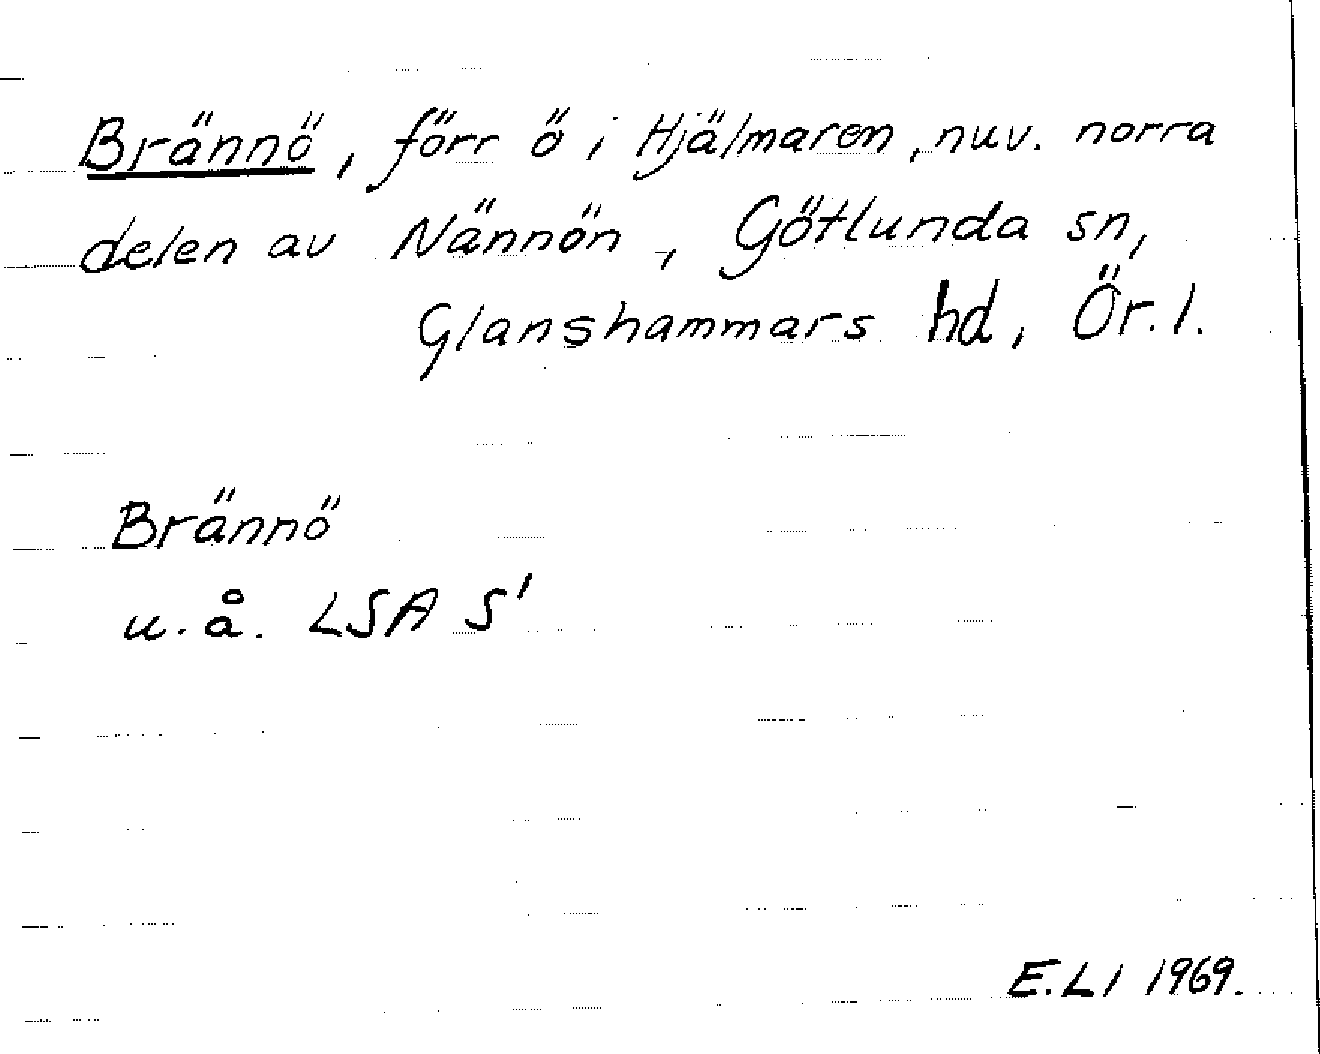 Brännö, förr ö i Hjälmaren, nuv. norra
delen av Nännön, Götlunda sn,
Glanshammars hd, Ör. l.
Brännö
u. å. LSA S'
E. LI 1969.